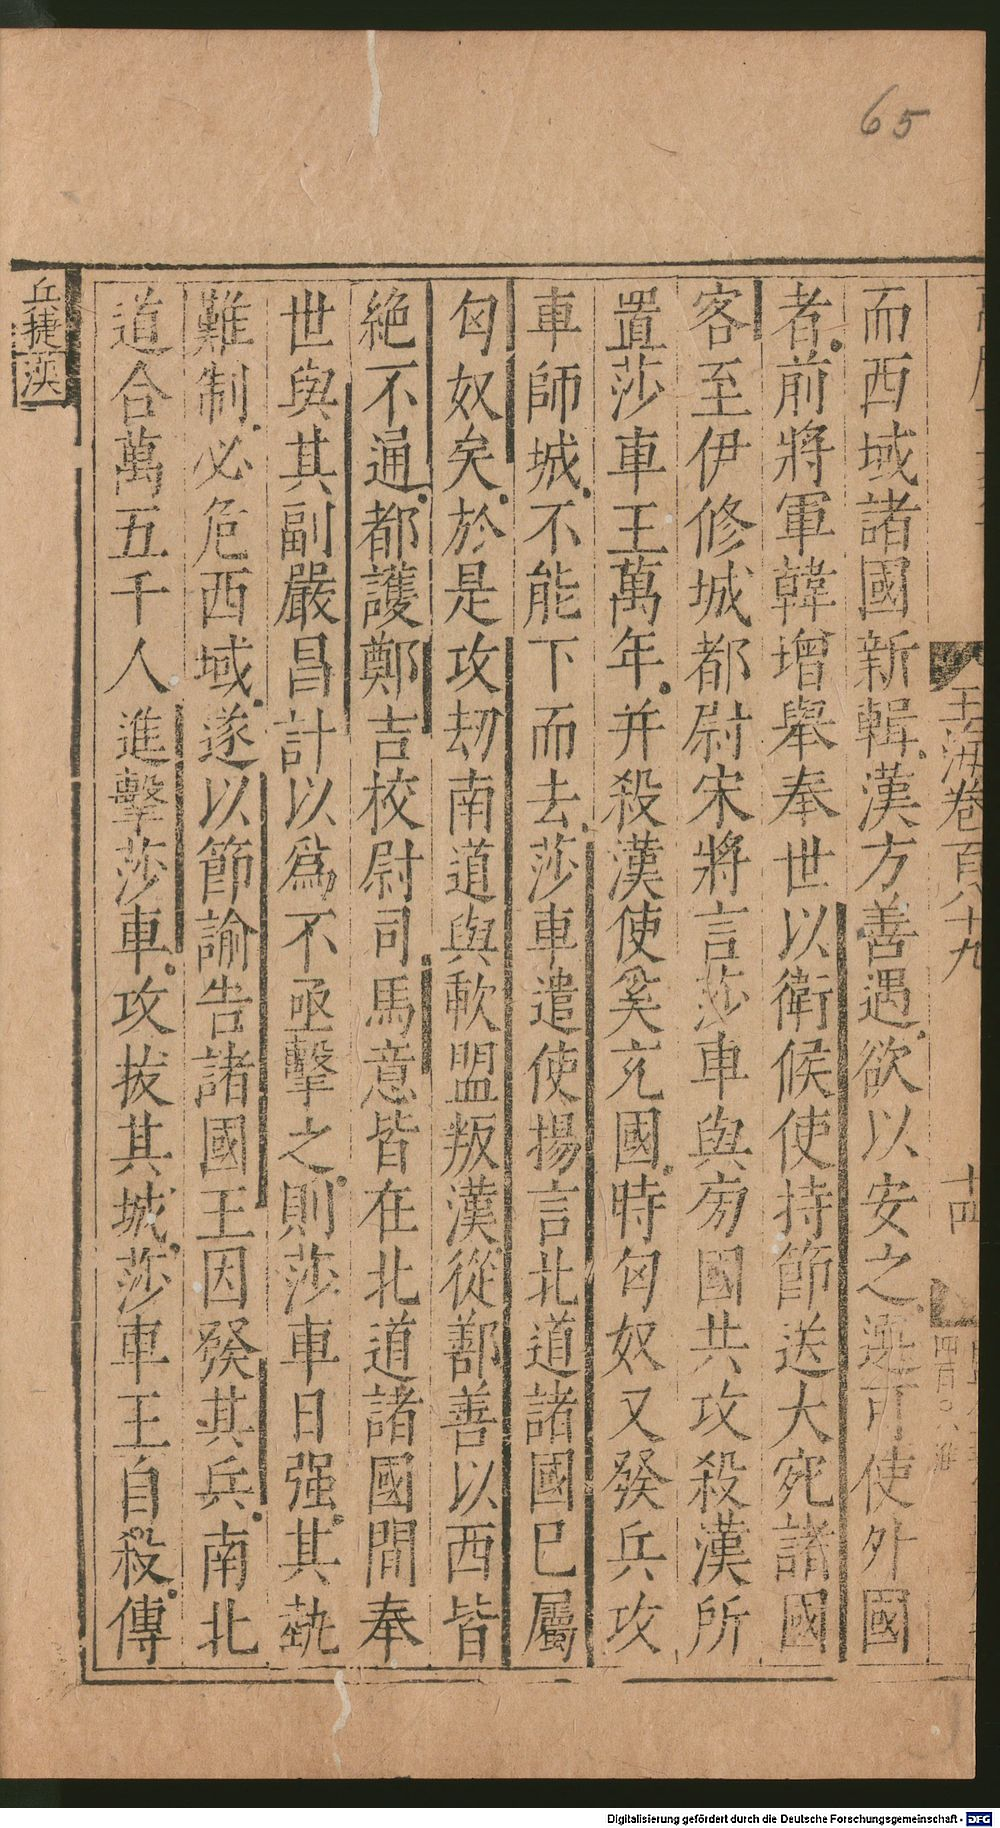 65
玉海卷百八十九
十四
而西域諸國新輯漢方善遇欲以安之選可使外國
者前將軍韓增舉奉世以衛候使持節送大宛諸國
客至伊修城都尉宋將言莎車與旁國共攻殺漢所
置莎車王萬年并殺漢使奚充國時匈奴又發兵攻
車師城不能下而去莎車遣使揚言北道諸國已屬
匈奴矣於是攻劫南道與歃盟叛漢從鄯善以西皆
絶不通都護鄭吉校尉司馬意皆在北道諸國間奉
世與其副嚴昌計以爲不亟擊之則莎車日强其埶
難制必危西域遂以節諭告諸國王因發其兵南北
道合萬五千人進擊莎車攻拔其城莎車王自殺傳
丘捷漢
Digitalisierung gefördert durch die Deutsche Forschungsgemeinschaft - DFG